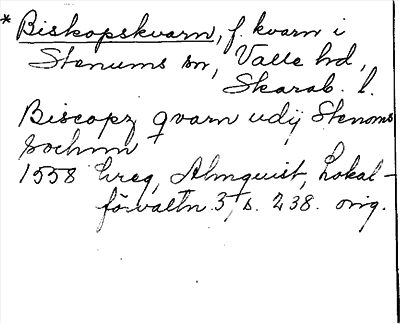 * Biskopskvarn, f. kvarn i
Stenums sn, Valle hd,
Skarab. l.
Biscopz qvarn udij Stenoms
sochnn
1558 Greg, Almquist, Lokal-
förvaltn. 3, s. 238. orig.